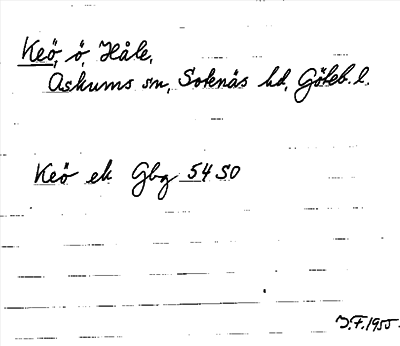 Keö, ö, Håle,
Askums sn, Sotenäs hd, Göteb. l.
Keö ek Gbg 54 SO
J.F. 1955.